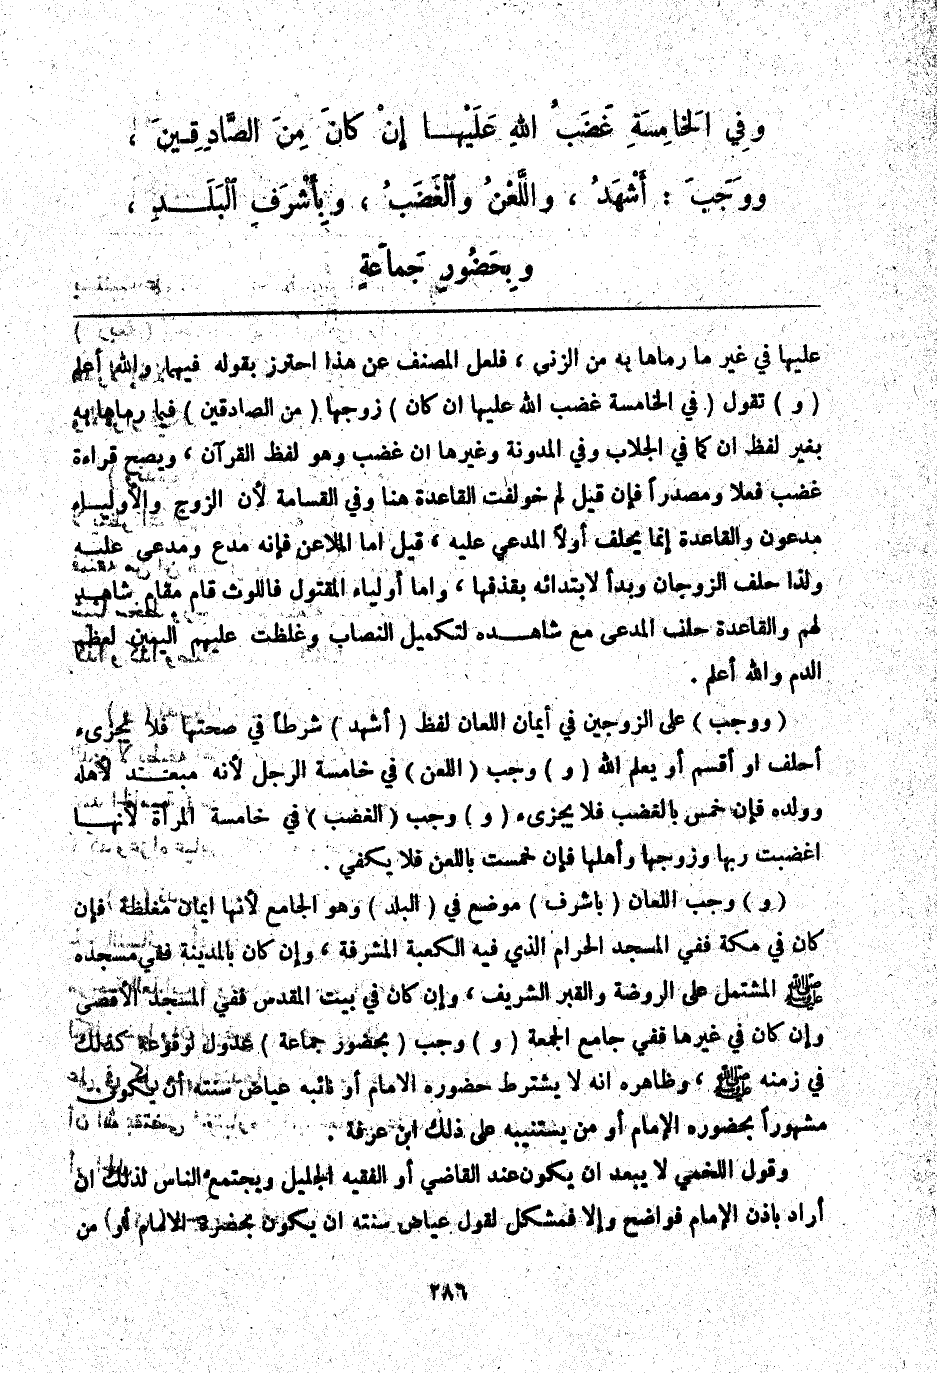 وفِي الَخامِسَةِ غَضَبُ اللهِ عَلَيْهـا إنْ كانَ مِنَ الصَّادِقـينَ ،
ووَجَبَ : أَشْهَدُ ، واللَّعْنُ والْغَضَبُ ، وبِأَشْرَفِ الْبَلَـدِ ،
وبِحَضُورِ جَماَعةٍ
عليها في غير ما رماها به من الزنى ، فلعل المصنف عن هذا احترز بقوله فيها والله أعلم
( و ) تقول ( في الخامسة غضب الله عليها ان كان ) زوجها ( من الصادقين ) فيما رماها به
بغير لفظ ان كما في الجلاب وفي المدونة وغيرها ان غضب وهو لفظ القرآن ، ويصح قراءة
غضب فعلا ومصدراً فإن قيل لم خولفت القاعدة هنا وفي القسامة لأن الزوج والأوليـاء
مدعون والقاعدة إنما يحلف أولاً المدعي عليه ، قيل اما الملاعن فإنه مدع ومدعى عليـه
ولذا حلف الزوجان وبدأ لابتدائه بقذفها ، واما أولياء المقتول فاللوث قام مقام شاهـد
لهم والقاعدة حلف المدعى مع شاهـده لتكميل النصاب وغلظت عليهم اليمين لعظم
الدم والله أعلم .
( ووجب ) على الزوجين في أيمان اللعان لفظ ( أشهد ) شرطاً في صحتها فلا يجزىء
أحلف او أقسم أو يعلم الله ( و ) وجب ( اللعن ) في خامسة الرجل لأنه مبعـد لأهله
وولده فإن خمس بالغضب فلا يجزىء ( و ) وجب ( الغضب ) في خامسة المرأة لأنهـا
اغضبت ربها وزوجها وأهلها فإن خمست باللعن فلا يكفي .
( و ) وجب اللعان ( باشرف ) موضع في ( البلد ) وهو الجامع لأنها ايمان مغلظة فإن
كان في مكة ففي المسجد الحرام الذي فيه الكعبة المشرفة ، وإن كان بالمدينة ففي مسجده
ﷺ المشتمل على الروضة والقبر الشريف ، وإن كان في بيت المقدس ففي المسجد الأقصى
وإن كان في غيرها ففي جامع الجمعة ( و ) وجب ( بحضور جماعة ) عدول لوقوعه كذلك
في زمنه ﷺ ، وظاهره انه لا يشترط حضوره الامام أو نائبه عياض سنته أن يكون
مشهوراً بحضوره الإمام أو من يستنيبه على ذلك ابن عرفة .
وقول اللخمي لا يبعد ان يكون عند القاضي أو الفقيه الجليل ويجتمع الناس لذلك ان
أراد باذن الإمام فواضح وإلا فمشكل لقول عياض سنته ان يكون بحضرة الامام أو من
٢٨٦